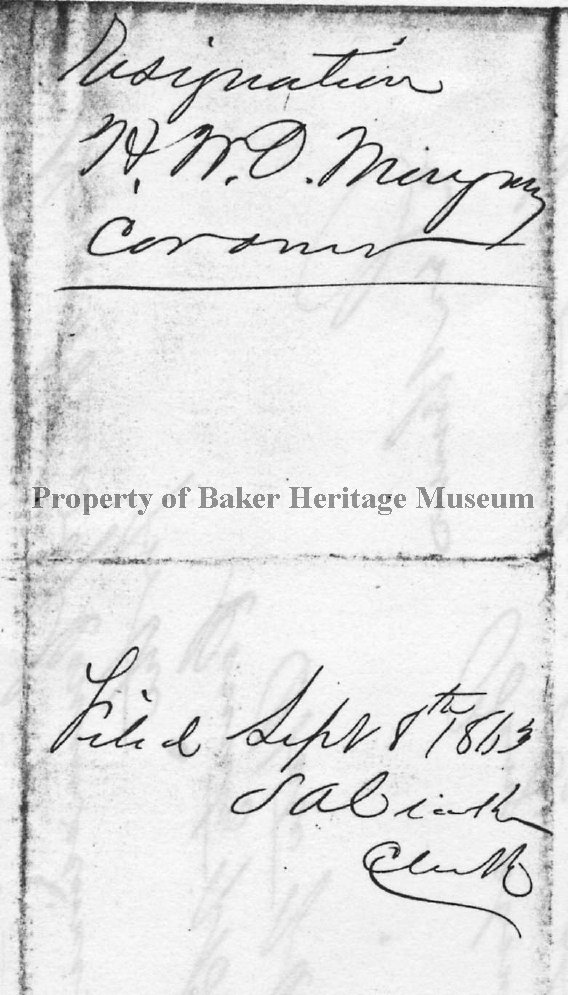 Resignation
H. W. D.
Coroner
Property of Baker Heritage Museum
Filed Sept 8th 1863
S A Clarke
Clerk